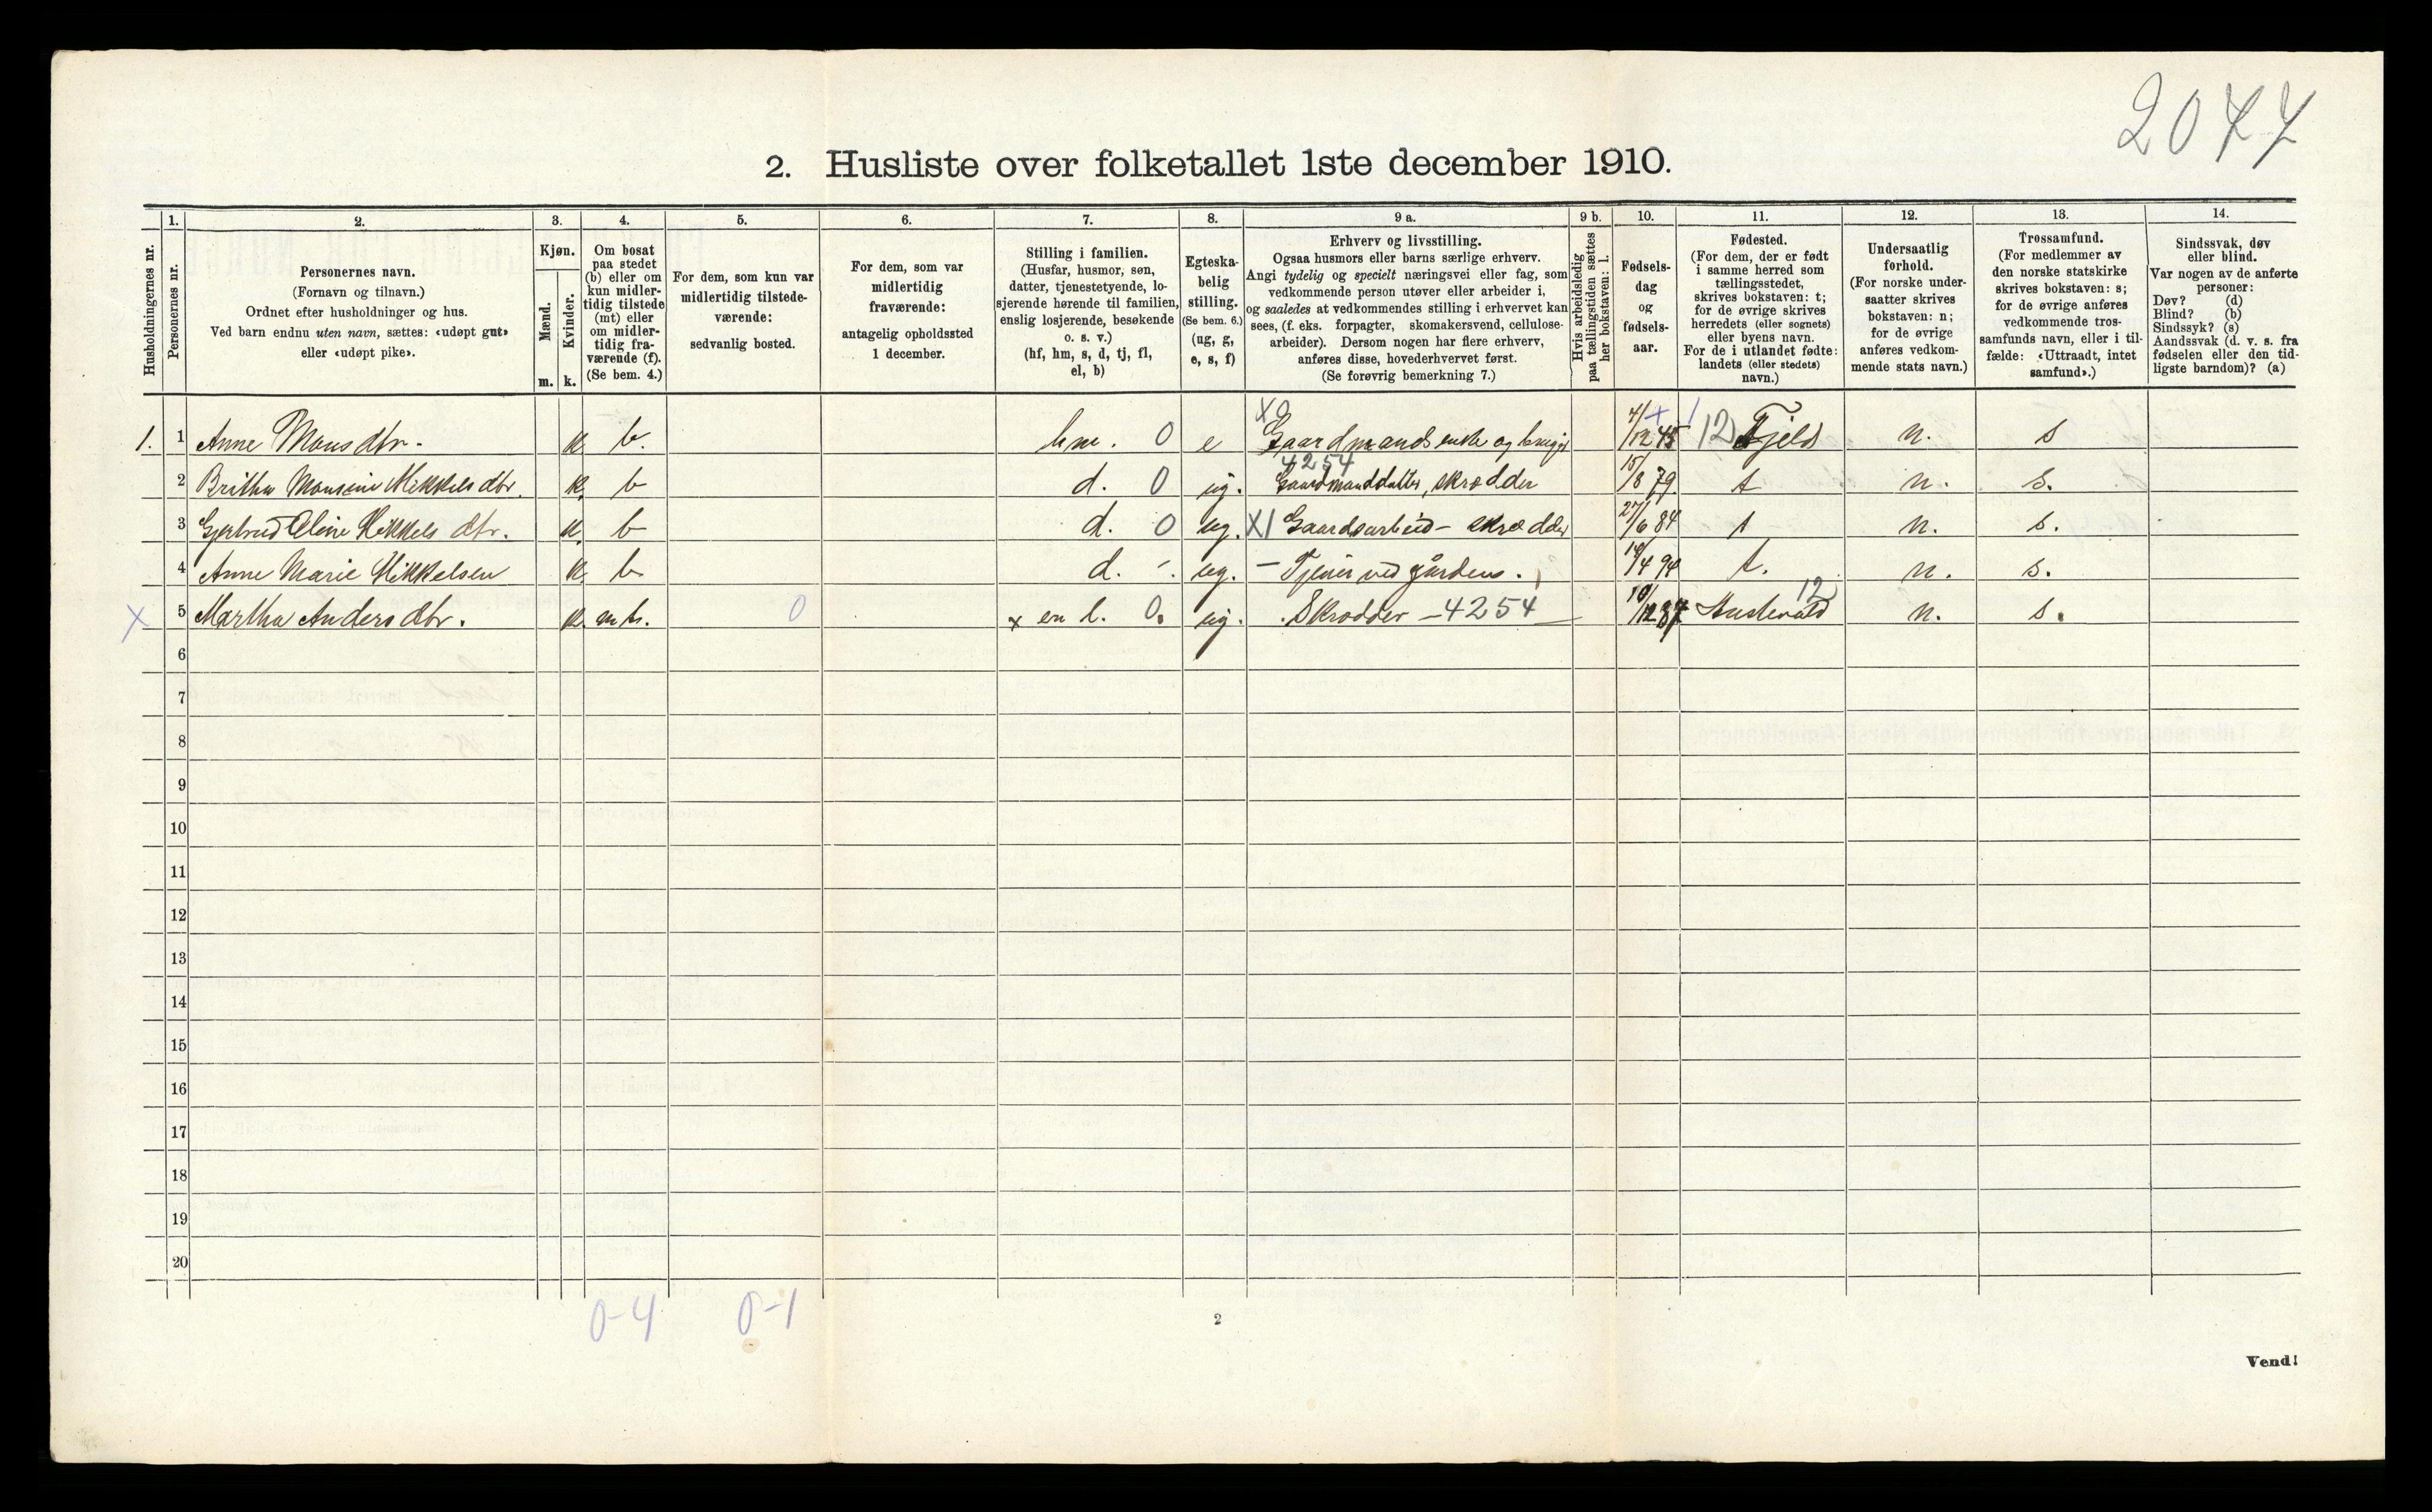 2077
2. Husliste over folketallet 1ste december 1910.
Husholdningernes nr.
1.
Personernes nr.
2.
Personernes navn.
(Fornavn og tilnavn.)
Ordnet efter husholdninger og hus.
Ved barn endnu uten navn, sættes: «udøpt gut»
eller «udøpt pike».
3.
Kjøn.
Mænd.
Kvinder.
m. k.
4.
Om bosat
paa stedet
(b) eller om
kun midler-
tidig tilstede
(mt) eller
om midler-
tidig fra-
værende (f).
(Se bem. 4.)
5.
For dem, som kun var
midlertidig tilstede-
værende:
sedvanlig bosted.
6.
For dem, som var
midlertidig
fraværende:
antagelig opholdssted
1 december.
7.
Stilling i familien.
(Husfar, husmor, søn,
datter, tjenestetyende, lo-
sjerende hørende til familien,
enslig losjerende, besøkende
o. s. v.)
(hf, hm, s, d, tj, fl,
el, b)
8.
Egteska-
belig
stilling.
(Se bem. 6.)
(ug, g,
e, s, f)
9 a.
Erhverv og livsstilling.
Ogsaa husmors eller barns særlige erhverv.
Angi tydelig og specielt næringsvei eller fag, som
vedkommende person utøver eller arbeider i,
og saaledes at vedkommendes stilling i erhvervet kan
sees, (f. eks. forpagter, skomakersvend, cellulose-
arbeider). Dersom nogen har flere erhverv,
anføres disse, hovederhvervet først.
(Se forøvrig bemerkning 7.)
9 b.
Hvis arbeidsledig
paa tællingstiden sættes
her bokstaven: l.
10.
Fødsels-
dag
og
fødsels-
aar.
11.
Fødested.
(For dem, der er født
i samme herred som
tællingsstedet,
skrives bokstaven: t;
for de øvrige skrives
herredets (eller sognets)
eller byens navn.
For de i utlandet fødte:
landets (eller stedets)
navn.)
12.
Undersaatlig
forhold.
(For norske under-
saatter skrives
bokstaven: n;
for de øvrige
anføres vedkom-
mende stats navn.)
13.
Trossamfund.
(For medlemmer av
den norske statskirke
skrives bokstaven: s;
for de øvrige anføres
vedkommende tros-
samfunds navn, eller i til-
fælde: «Uttraadt, intet
samfund».)
14.
Sindssvak, døv
eller blind.
Var nogen av de anførte
personer:
Døv? (d)
Blind? (b)
Sindssyk? (s)
Aandssvak (d. v. s. fra
fødselen eller den tid-
ligste barndom)? (a)
1. 1 Anne Monsdtr. k. b. hm. 0 e X0 Gaardmands enke og 4/12 45 12 Fjeld n. s
2 Britha Monsine Mikkelsdtr. k. b d. 0 ug. 4254 Gaardmanddatter, skrædder 15/8 79 t n. s.
3 Gjertrud Oline Mikkels dtr. k. b d. 0 ug. X1 Gaardsarbeid - skrædder 27/6 84 t n. s.
4 Anne Marie Mikkelsen k. b d. -. ug. - Tjener ved gårdens. 14/4 94 t. n. s.
X 5 Martha Andersdtr. k. mt. 0 x en l. 0. ug. Skrodder - 4254 10/12 87 12 n. s.
6
7
8
9
10
11
12
13
14
15
16
17
18
19
20
0-4 0-1
2
Vend!